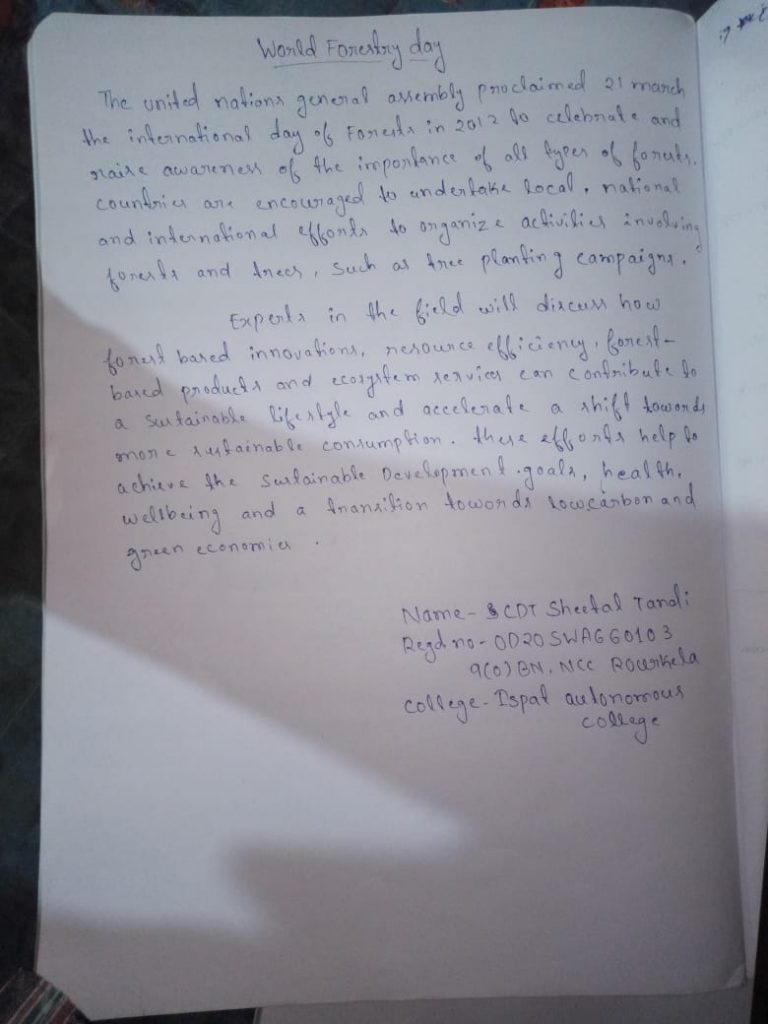 World Forestry day
The united nations general assembly proclaimed 21 march
the international day of Forests in 2012 to celebrate and
raise awareness of the importance of all types of forests.
countries are encouraged to undertake local, national
and international efforts to organize activities involving
forests and trees, such as tree planting campaigns.
Experts in the field will discuss how
forest based innovations, resource efficiency, forest-
based products and ecosystem services can contribute to
a sustainable lifestyle and accelerate a shift towards
more sustainable consumption. these efforts help to
achieve the sustainable Development goals, health,
wellbeing and a transition towards lowcarbon and
green economies.
Name - CDT Sheetal Tandi
Regd no - OD20SWAG60103
9(O) BN. NCC Rourkela
college - Ispat autonomous
college